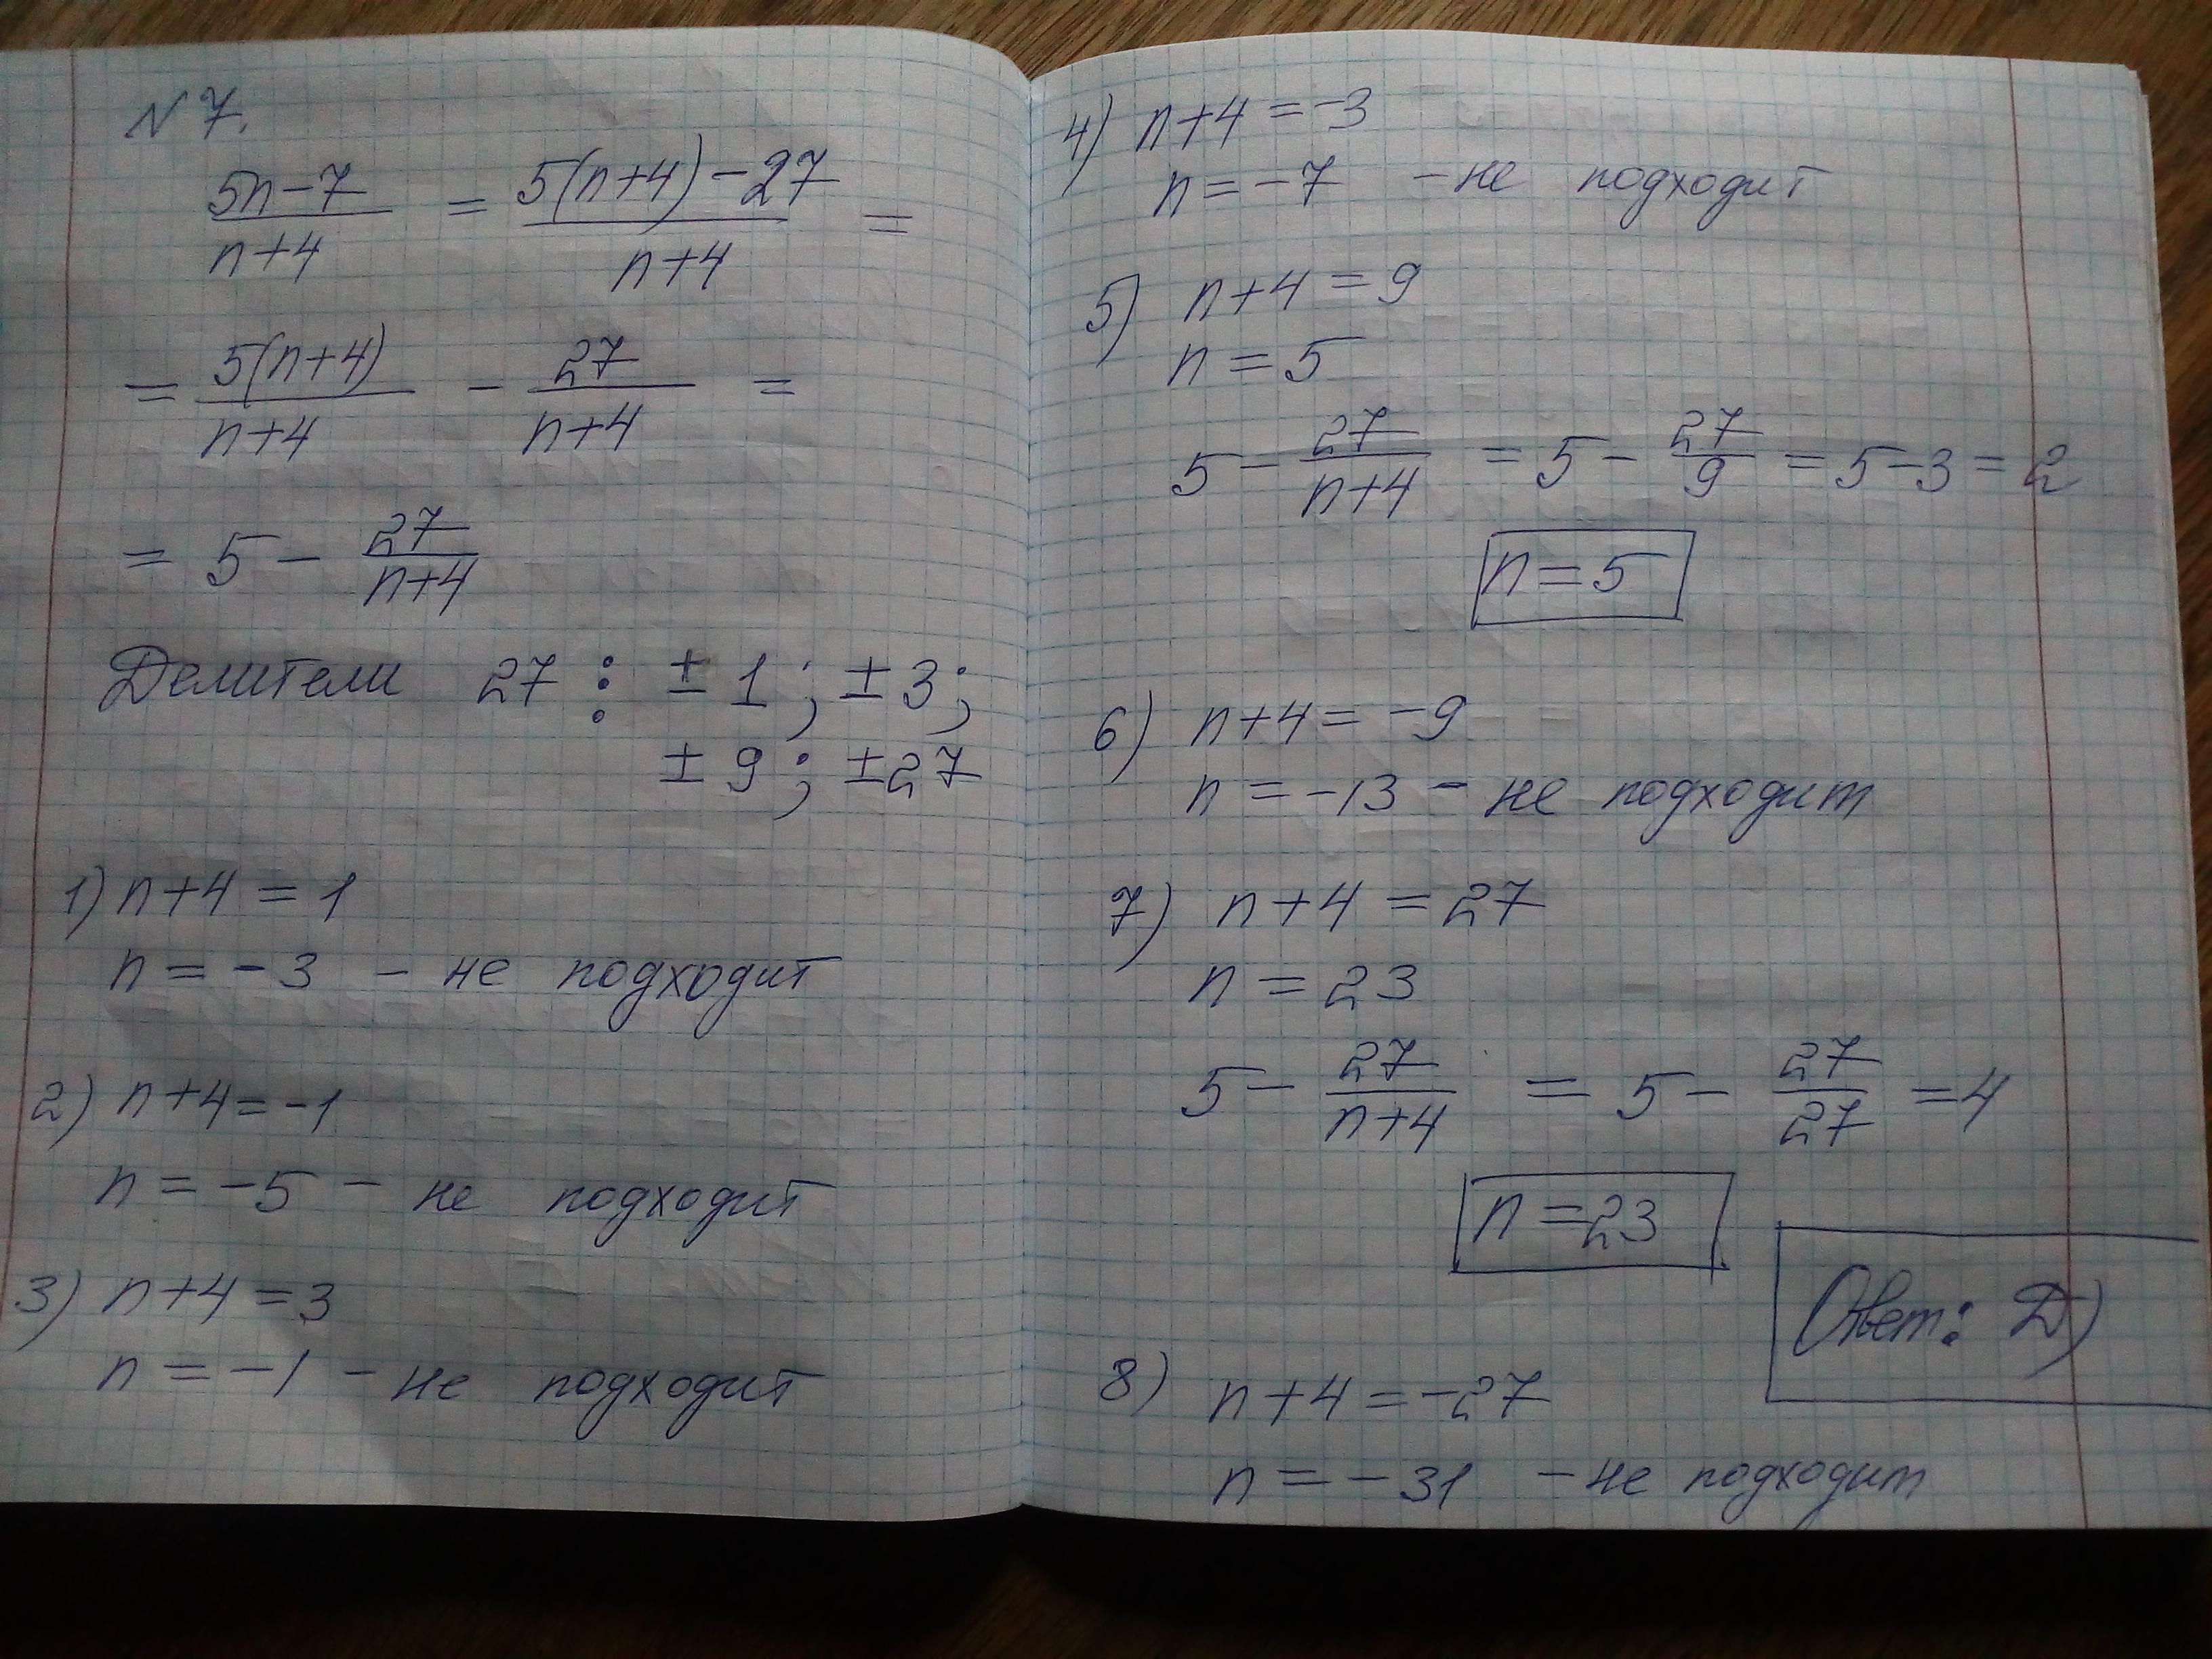 N 7.
(5n-7)/(n+4) = (5(n+4)-27)/(n+4) =
= 5(n+4)/(n+4) - 27/(n+4) =
= 5 - 27/(n+4)
Делители 27 : ±1; ±3;
±9; ±27
1) n+4 = 1
n = -3 - не подходит
2) n+4 = -1
n = -5 - не подходит
3) n+4 = 3
n = -1 - не подходит
4) n+4 = -3
n = -7 - не подходит
5) n+4 = 9
n = 5
5 - 27/(n+4) = 5 - 27/9 = 5-3 = 2
n = 5
6) n+4 = -9
n = -13 - не подходит
7) n+4 = 27
n = 23
5 - 27/(n+4) = 5 - 27/27 = 4
n = 23
Ответ: D)
8) n+4 = -27
n = -31 - не подходит